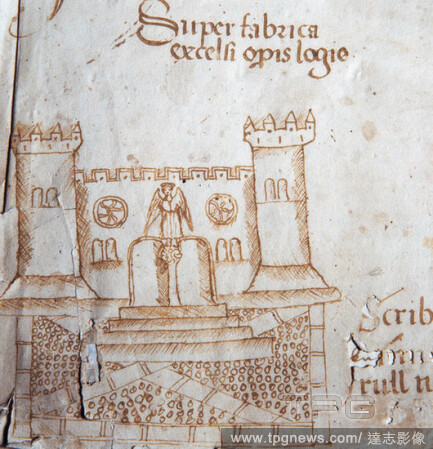 Super fabrica
excelsi opis logie
Scrib
rull
PG
www.tpgnews.com/ 達志影像